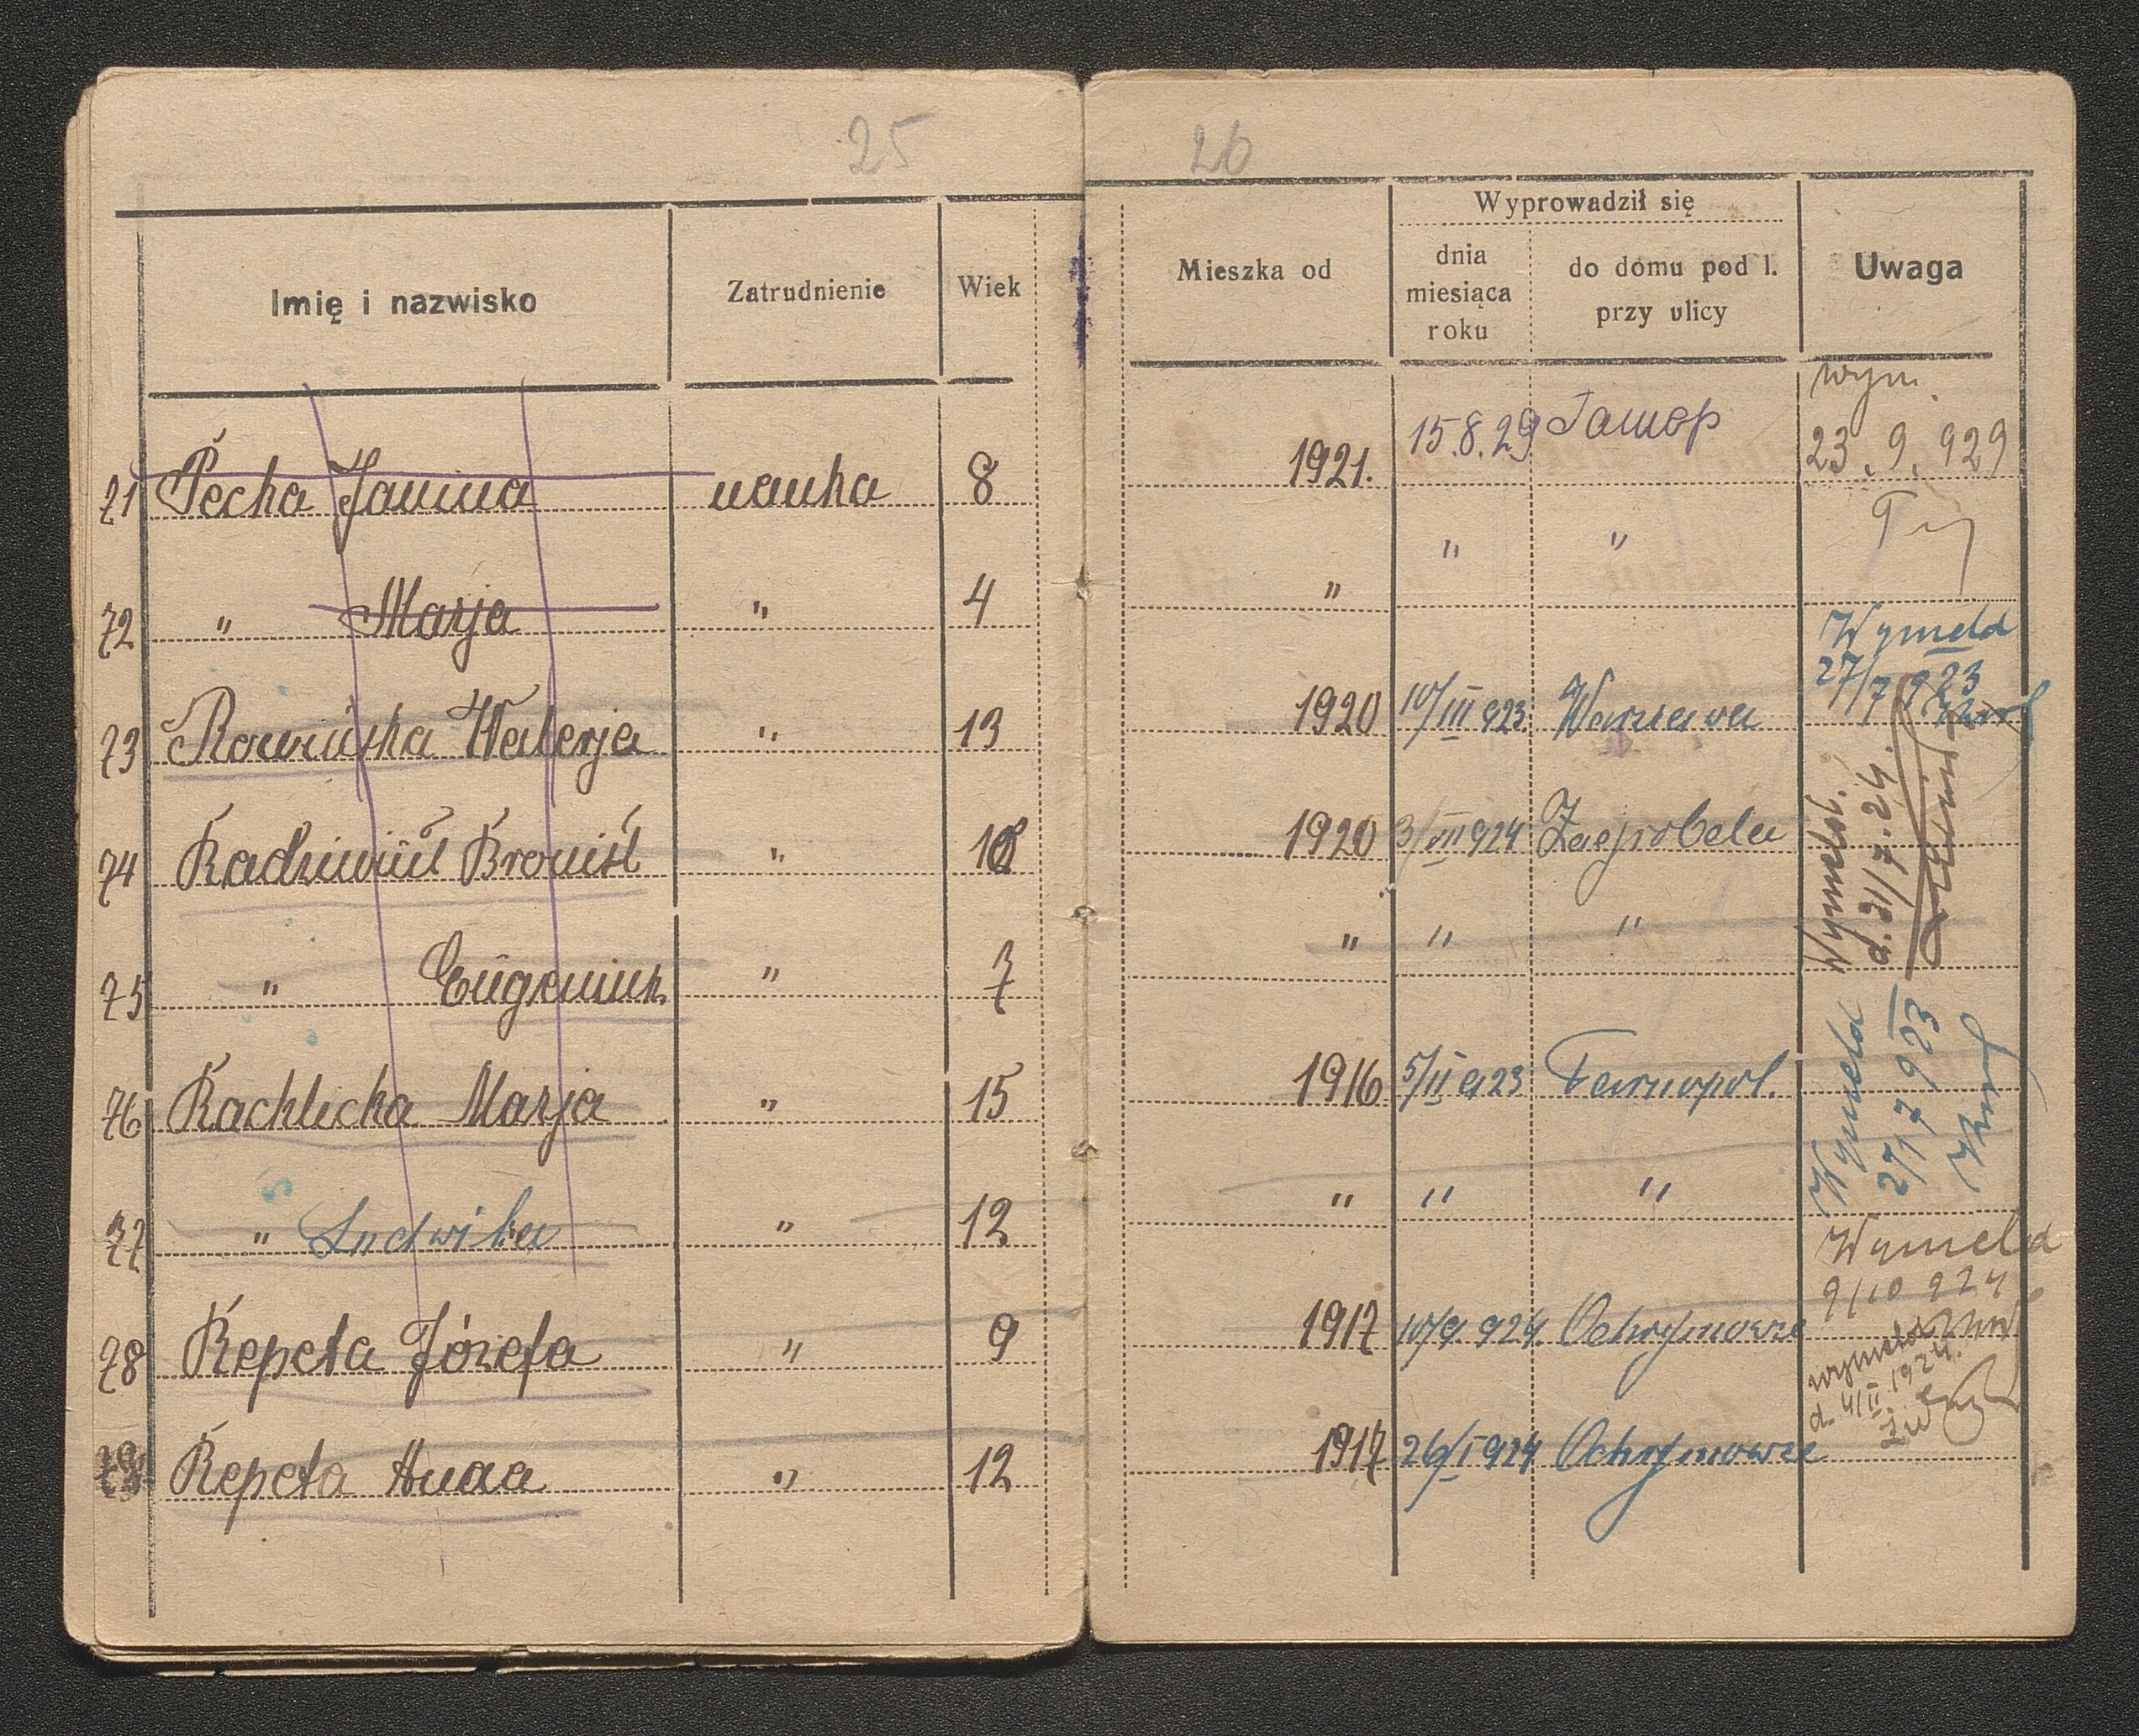 25
Imię i nazwisko Zatrudnienie Wiek
71 Pecha Janina nauka 8
72 " Marja " 4
73 Rawińska Walerja " 13
74 Radziwiił Bronisł " 10
75 " Eugeniusz " 7
76 Rachlicka Marja " 15
77 " Ludwika " 12
78 Repeta Józefa " 9
79 Repeta Anna " 12
26
Mieszka od Wyprowadził się Uwaga
dnia miesiąca roku do domu pod l. przy ulicy
1921. 15.8.29 wym. 23.9.929
" " "
1920 10/III 923. Warszawa Wymeld 27/7 923
1920 3/VII 924 Wymeld. d. 31/7.24.
" " "
1916 5/II 923 Tarnopol. Wymeld 27/7 923
" " "
1917 10/9. 924. Ochrymowce Wymeld 9/10 924
1917 26/I 924 Ochrymowce wymeld d. 4/II 1924.